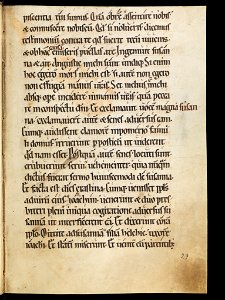 piscentia tui sumus. Quā obrē assentire nobis
& commiscere nobiscū. Qd si nolueris dicemus
testimoniū contra te qd fuerit tecū iuuenis
& ob hanc causā emiseris puellas a te. Ingemuit susan
na & ait. Angustie michi sunt undiqȝ. Si enim
hoc egero mors michi est. si autē non egero
non effugiā manus uras. Sed melius michi
absqȝ ope incidere in manus uras quā pecca
re in conspectu dni. Et exclamauit uoce magna susan
na. exclamauer autē & senes aduersus eā.
Cumqȝ audissent clamorē in pomerio famu
li domus irruerunt p posticū ut uiderent
qd nam esset. Postquā autē senes locuti sunt
erubuerunt serui uehementer. quia nūquā
dictus fuerat sermo huiuscemodi de susanna.
Et facta est dies crastina. Cumqȝ uenisset ppls
ad uirū eius ioachim uenerunt & duo pres
biteri pleni iniqua cogitatione aduersus su
sannā ut interficerent eā. Et dixerunt corā
pplo. Mittite ad susannā filiā helchie uxorē
ioachi. Et statī miserunt. Et uenit cū parentibȝ